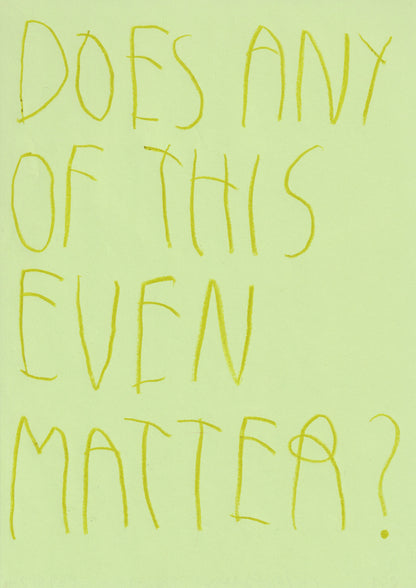 DOES ANY
OF THIS
EVEN
MATTER?